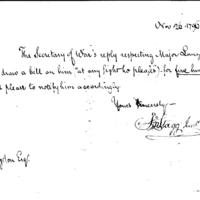 Nov 26 179
The Secretary of War's reply respecting Major
draw a bill on him "at any sight he pleases) for five hun
please to notify him accordingly.
Yours Sincerely
Esq.